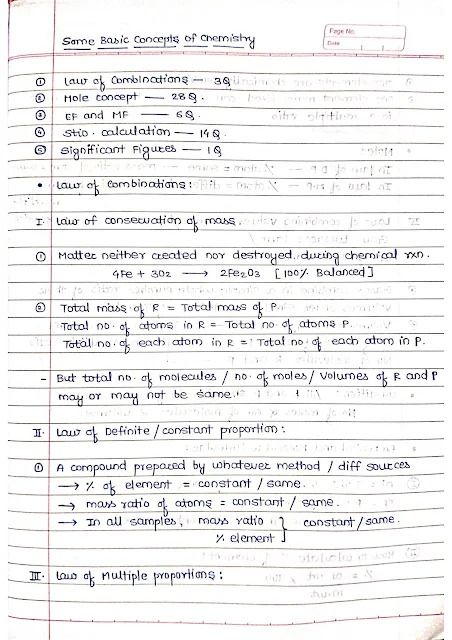 Page No.
Date
Some Basic Concepts of Chemistry
① Law of Combinations — 3Q
② Mole concept — 28Q.
③ EF and MF — 6Q.
④ Stio. calculation — 14Q.
⑤ Significant Figures — 1Q
• Law of Combinations:
I. Law of conservation of mass.
① Matter neither created nor destroyed during chemical rxn.
4Fe + 3O2 → 2Fe2O3 [100% Balanced]
② Total mass of R = Total mass of P.
Total no. of atoms in R = Total no. of atoms P.
Total no. of each atom in R = Total no. of each atom in P.
- But total no. of molecules / no. of moles / Volumes of R and P
may or may not be same.
II. Law of Definite / constant proportion:
① A compound prepared by whatever method / diff sources
→ % of element = constant / same.
→ mass ratio of atoms = constant / same.
→ In all samples, mass ratio } constant / same.
% element
III. Law of Multiple proportions: